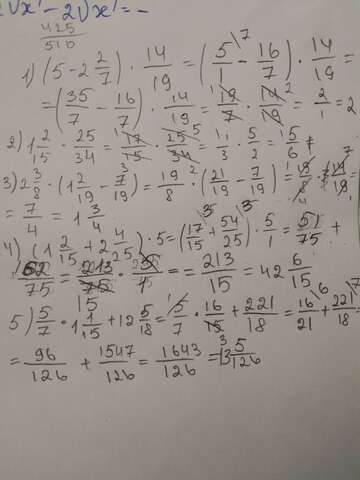 425
510
1) (5 - 2 2/7) · 14/19 = (5/1 - 16/7) · 14/19 =
= (35/7 - 16/7) · 14/19 = 19/7 · 14/19 = 2/1 = 2
2) 1 2/15 · 25/34 = 17/15 · 25/34 = 1/3 · 5/2 = 5/6
3) 2 3/8 · (1 2/19 - 7/19) = 19/8 · (21/19 - 7/19) = 19/8 · 14/19 =
= 7/4 = 1 3/4
4) (1 2/15 + 2 4/25) · 5 = (17/15 + 54/25) · 5/1 = 51/75 +
162/75 = 213/75 · 5/1 = = 213/15 = 42 6/15
5) 5/7 · 1 1/15 + 12 5/18 = 5/7 · 16/15 + 221/18 = 16/21 + 221/18 =
= 96/126 + 1547/126 = 1643/126 = 13 5/126